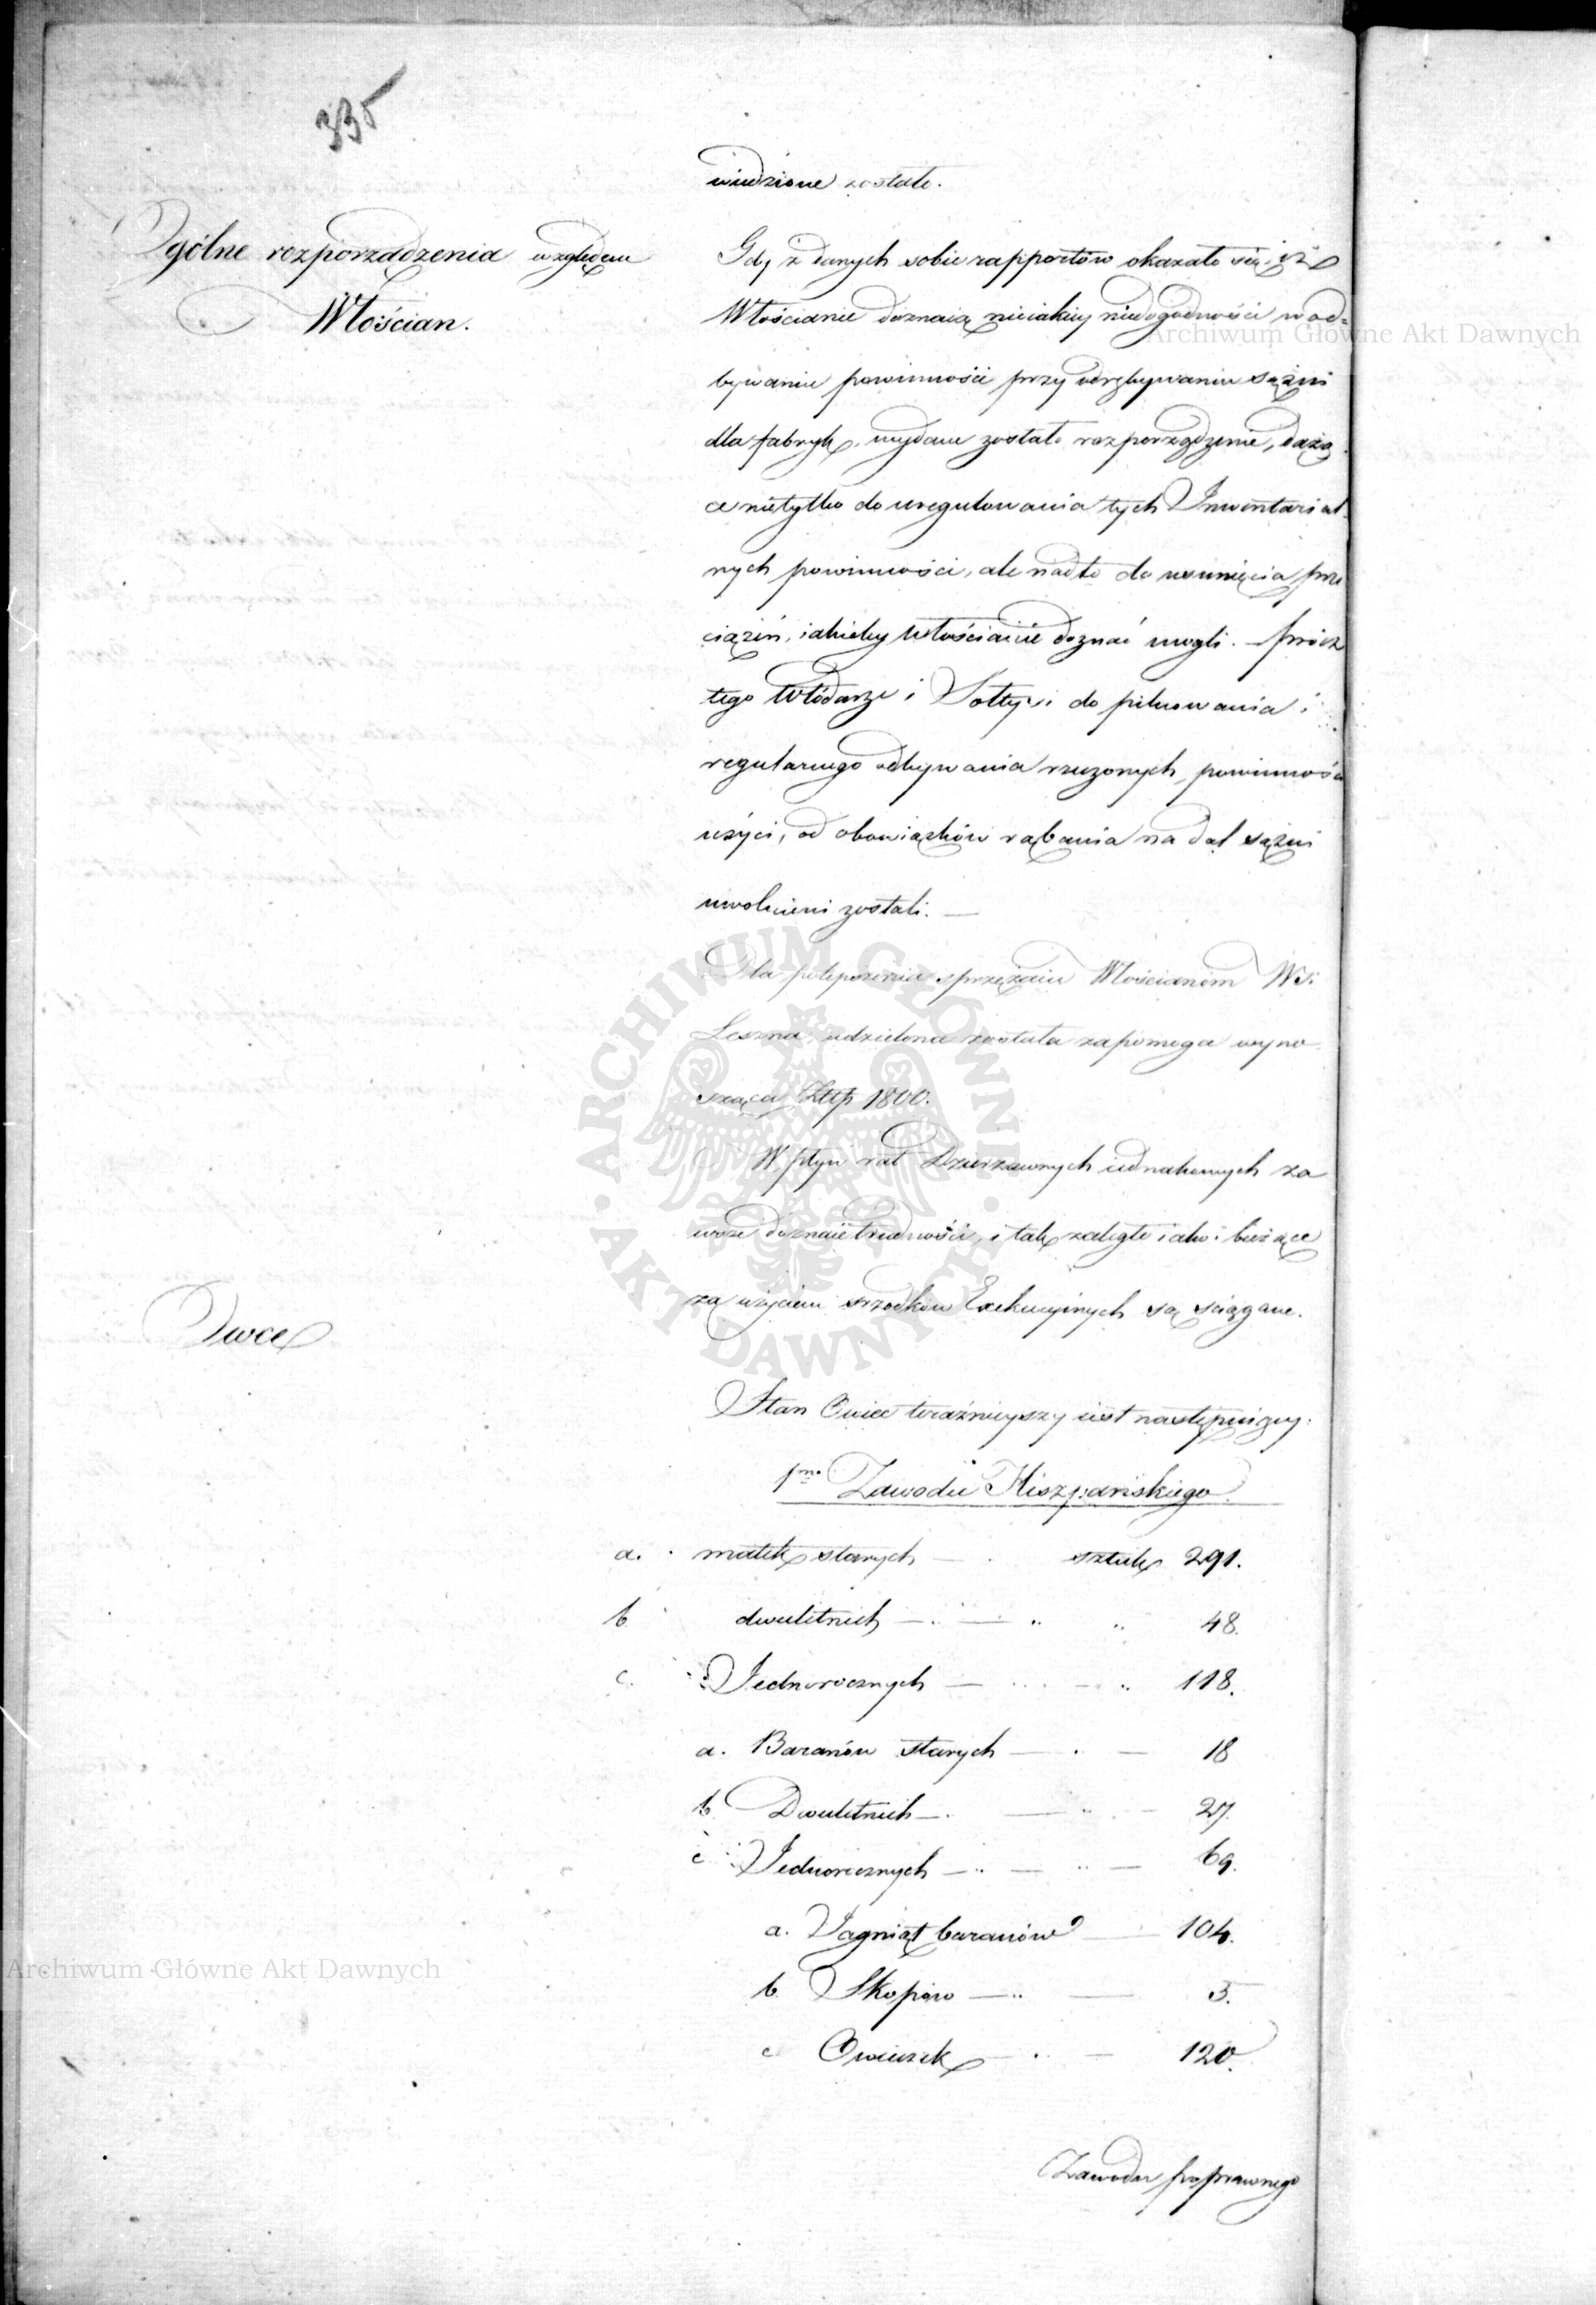 335
wiedzione zostało.
Ogólne rozporządzenia względem
Włościan.
Gdy z danych sobie rapportów okazało się, iż
Włościanie doznaią nieiakiey niedogodności w od=
bywaniu powinności przy wyrębywaniu sążni
dla fabryk, wydane zostało rozporządzenie, dążą
ce nietylko do uregulowania tych Inwentarial
nych powinności, ale nadto do usunięcia prze
ciążeń, iakichby Włościanie doznać mogli. – Prócz
tego Włódarze i Sołtysi do pilnowania i
regularnego odbywania rzeczonych powinności
użyci, od obowiązków rąbania na dal sążni
uwolnieni zostali. —
Dla polepszenia sprzężaiu Włościanom Wsi
Leszna, udzielona została zapomoga wyno
sząca Złtp 1800.
Wpływ rat Dzierżawnych iednakowych za
wsze doznaie trudności, i tak zaległe iako i bieżące
za użyciem srzodków Exekucyinych są ściągane.
Owce
Stan Owiec teraźnieyszy iest następuiący:
pmo Zawodu Hiszpańskiego.
a. matek starych — sztuk 291.
b dwuletnich — " — " " 48.
c. Jednorocznych — " 118.
a. Baranów starych — 18
b. Dwuletnich — 27.
c Jednorocznych — " — " — 69.
a. Jagniąt baranów — 104.
b. Skopów — " — 5.
c Owieczek — 120.
Zawodu poprawnego
Archiwum Główne Akt Dawnych
Archiwum Główne Akt Dawnych
ARCHIWUM GŁÓWNE · AKT DAWNYCH ·